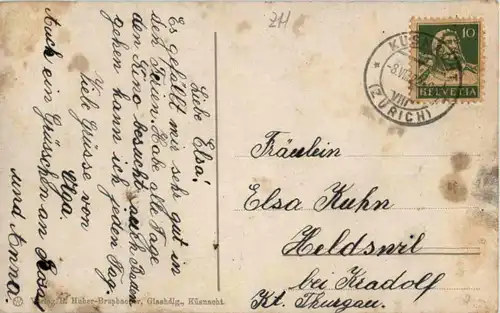 Liebe Elsa!
Es gefällt mir sehr gut in
den Ferien. Habe alle Tage
den Kino besucht, auch Baden
gehen kann ich jeden Tag.
Viele Grüsse von
Olga.
Auch ein Grüsschen an Rosa
und Anna.
ZH
KÜS
-8.VIII
VIII
(ZÜRICH)
10
HELVETIA
Fräulein
Elsa Kuhn
Heldswil
bei Kradolf
Kt. Thurgau.
Verlag H. Huber-Brupbacher, Glashdlg., Küsnacht.